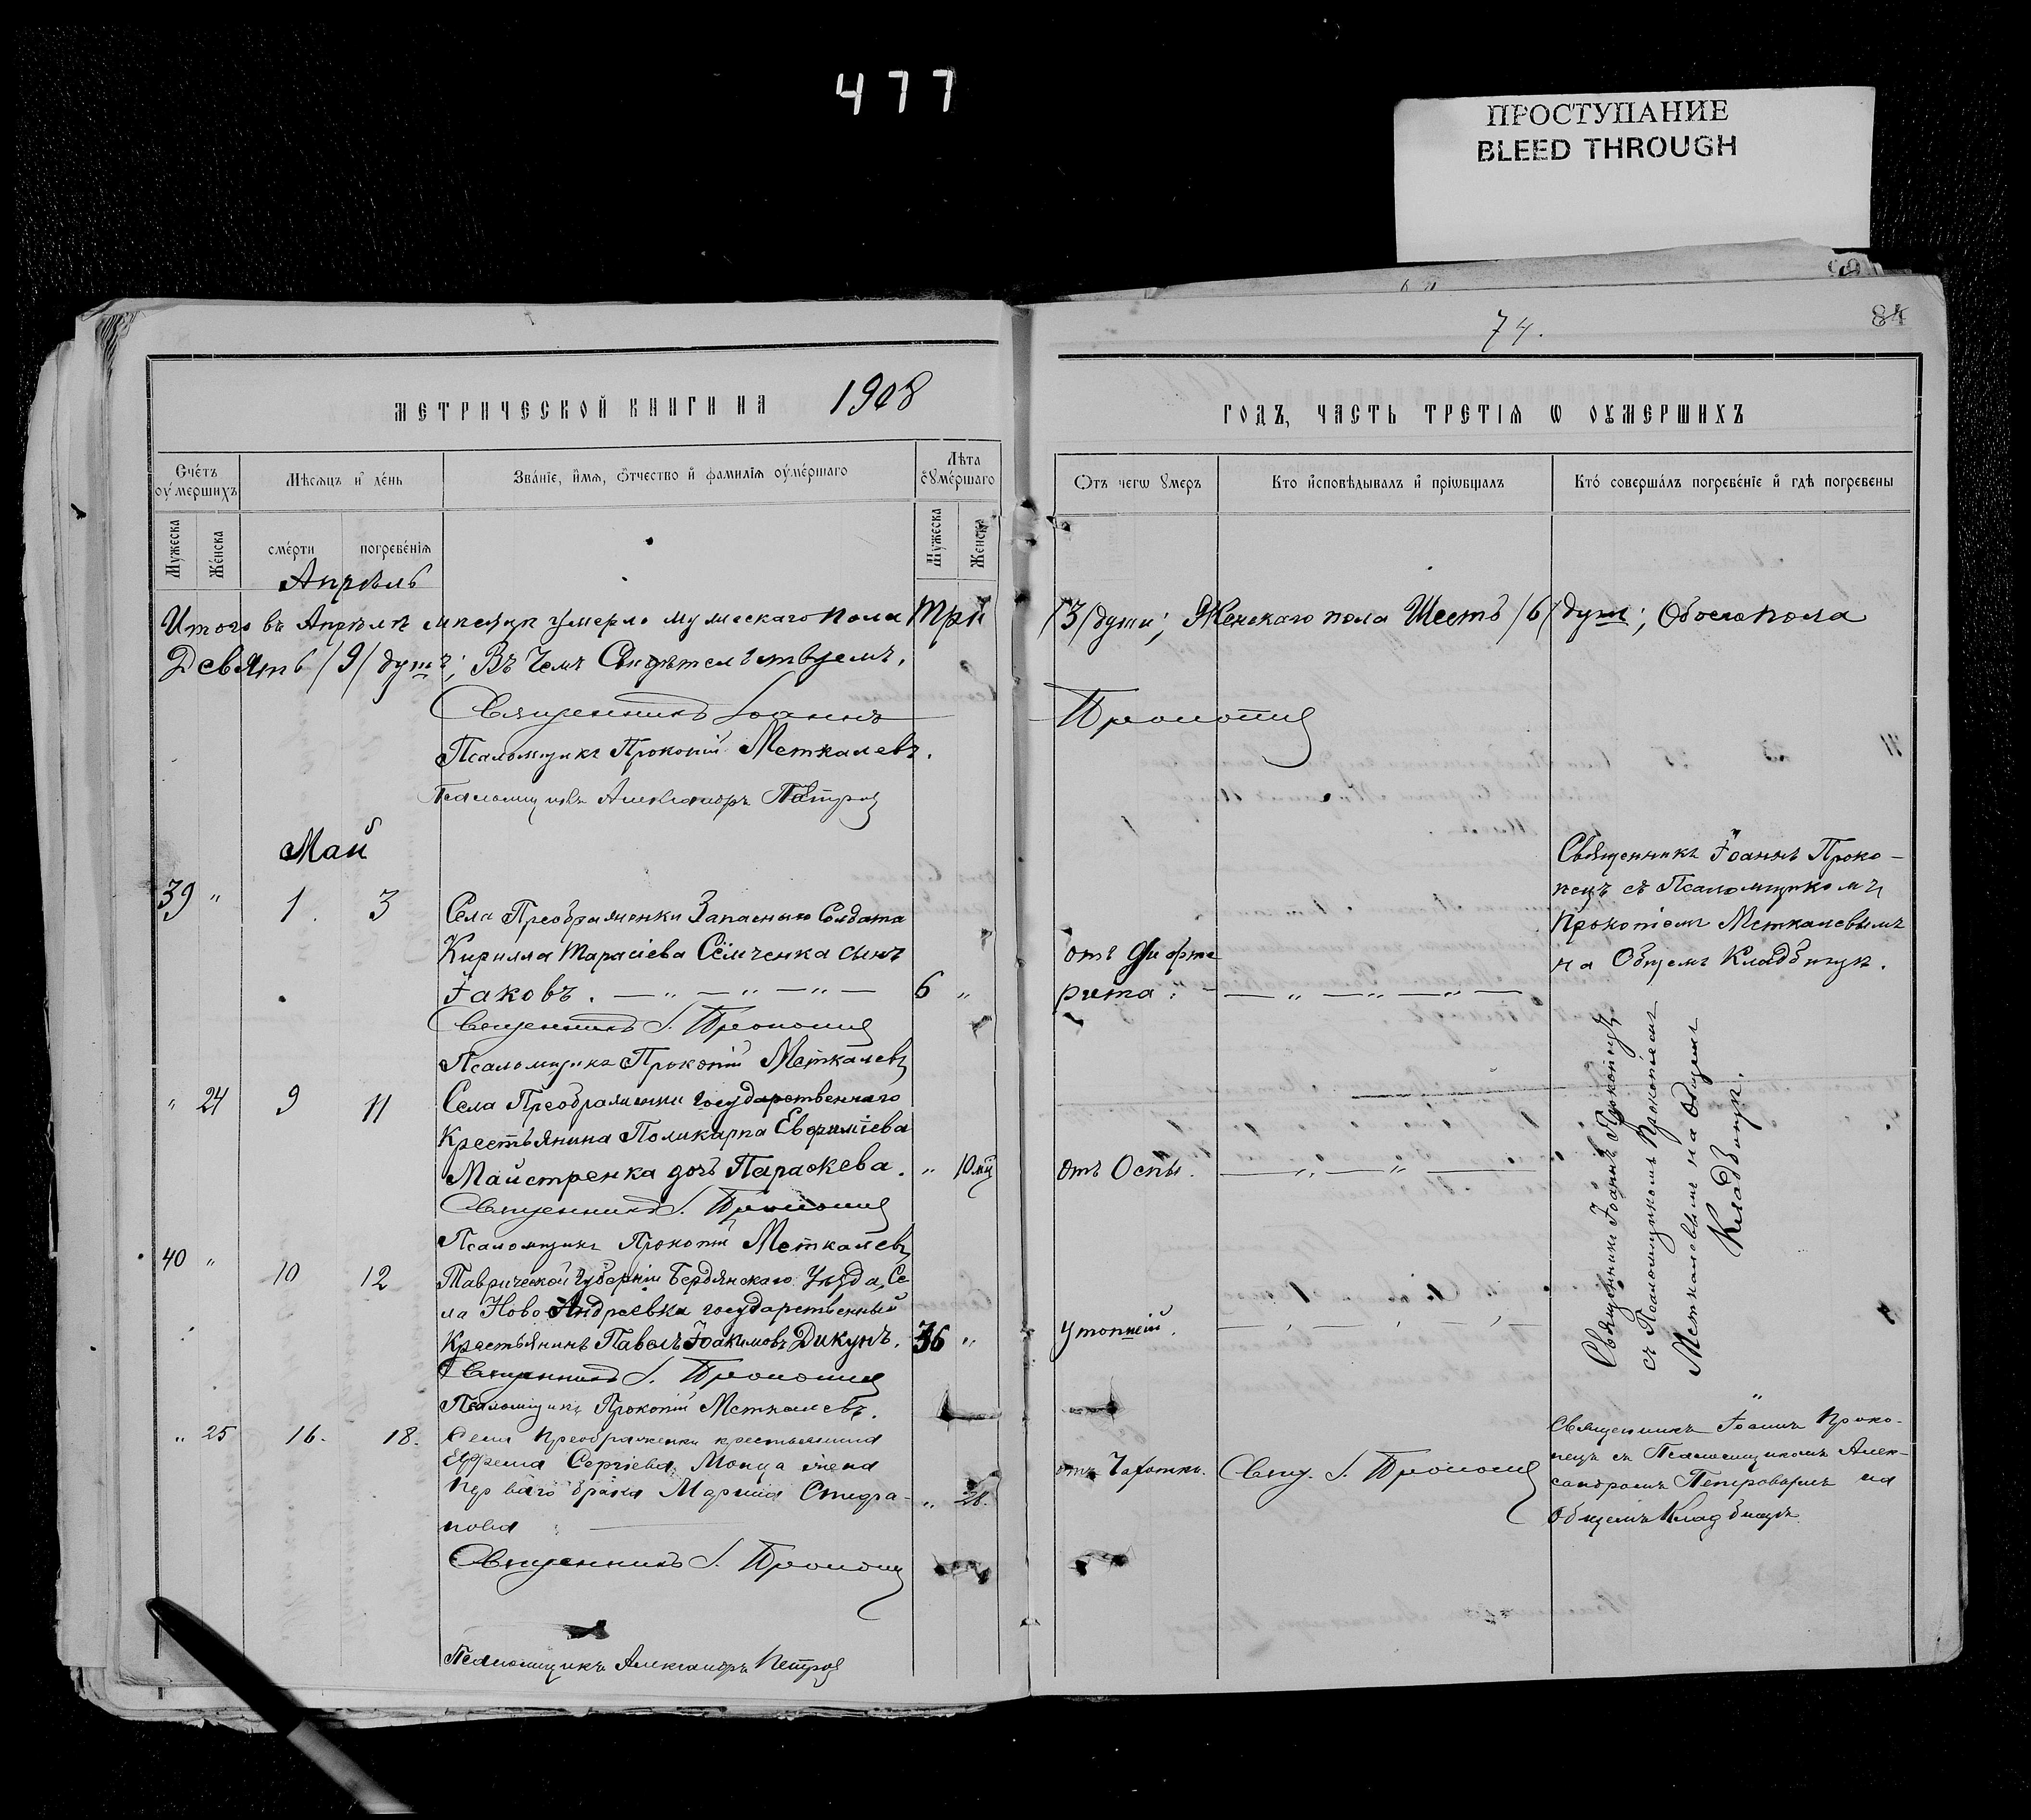 477
ПРОСТУПАНИЕ
BLEED THROUGH
74.
84
МЕТРИЧЕСКОЙ КНИГИ НА 1908
ГОДЪ, ЧАСТЬ ТРЕТІЯ Ѡ ОУМЕРШИХЪ
Счетъ оумершихъ
Мѣсяцъ и день
Званіе, имя, отчество и фамилія оумершаго
Лѣта оумершаго
Отъ чегѡ умеръ
Кто исповѣдывалъ и пріѡбщалъ
Кто совершалъ погребеніе и гдѣ погребены
Мужеска
Женска
смерти
погребенія
Мужеска
Женска
Апрѣль
Итого въ Апрѣлѣ мѣсяцѣ умерло мужескаго пола Три /3/ души; Женскаго пола Шесть /6/ душъ; Обоего пола
Девять /9/ душъ; Въ чемъ Свидѣтельствуемъ.
Священникъ Іоаннъ Прокопец
Псаломщикъ Прокопій Меткалевъ.
Псаломщикъ Александръ Петров
Май
39 " 1. 3
Села Преображенки Запаснаго Солдата
Кирилла Тарасіева Сёмченка сынъ
Іаковъ. — " — " — " — 6 "
отъ Дифте
рита. — " — " — " —
Священникъ Іоаннъ Проко-
пецъ съ Псаломщикомъ
Прокопіемъ Меткалевымъ
на Общемъ Кладбищѣ.
Священникъ І. Прокопец
Псаломщикъ Прокопій Меткалевъ
" 24 9 11
Села Преображенки государственнаго
Крестьянина Поликарпа Евфиміева
Майстренка дочь Параскева. " 10 мѣ
отъ Оспы. — " — " —
Священникъ І. Прокопец
Псаломщикъ Прокопій Меткалевъ
Священникъ Іоаннъ Прокопецъ
съ Псаломщикомъ Прокопіемъ
Меткалевымъ на Общемъ
Кладбищѣ.
40 " 10 12
Таврической Губерніи Бердянскаго Уѣзда, Се
ла Ново-Андреевка государственный
Крестьянинъ Павелъ Іоакимовъ Дикунъ. 36 "
утопшій.
Священникъ І. Прокопец
Псаломщикъ Прокопій Меткалевъ.
" 25 16. 18.
Села Преображенки крестьянина
Ефрема Сергіева жена
перваго брака Марина Стефа-
нова " 28.
отъ Чахотки.
Свящ. І. Прокопец
Священникъ Іоаннъ Проко-
пецъ съ Псаломщикомъ Алек-
сандромъ Петровымъ на
Общемъ Кладбищѣ
Священникъ І. Прокопец
Псаломщикъ Александръ Петров